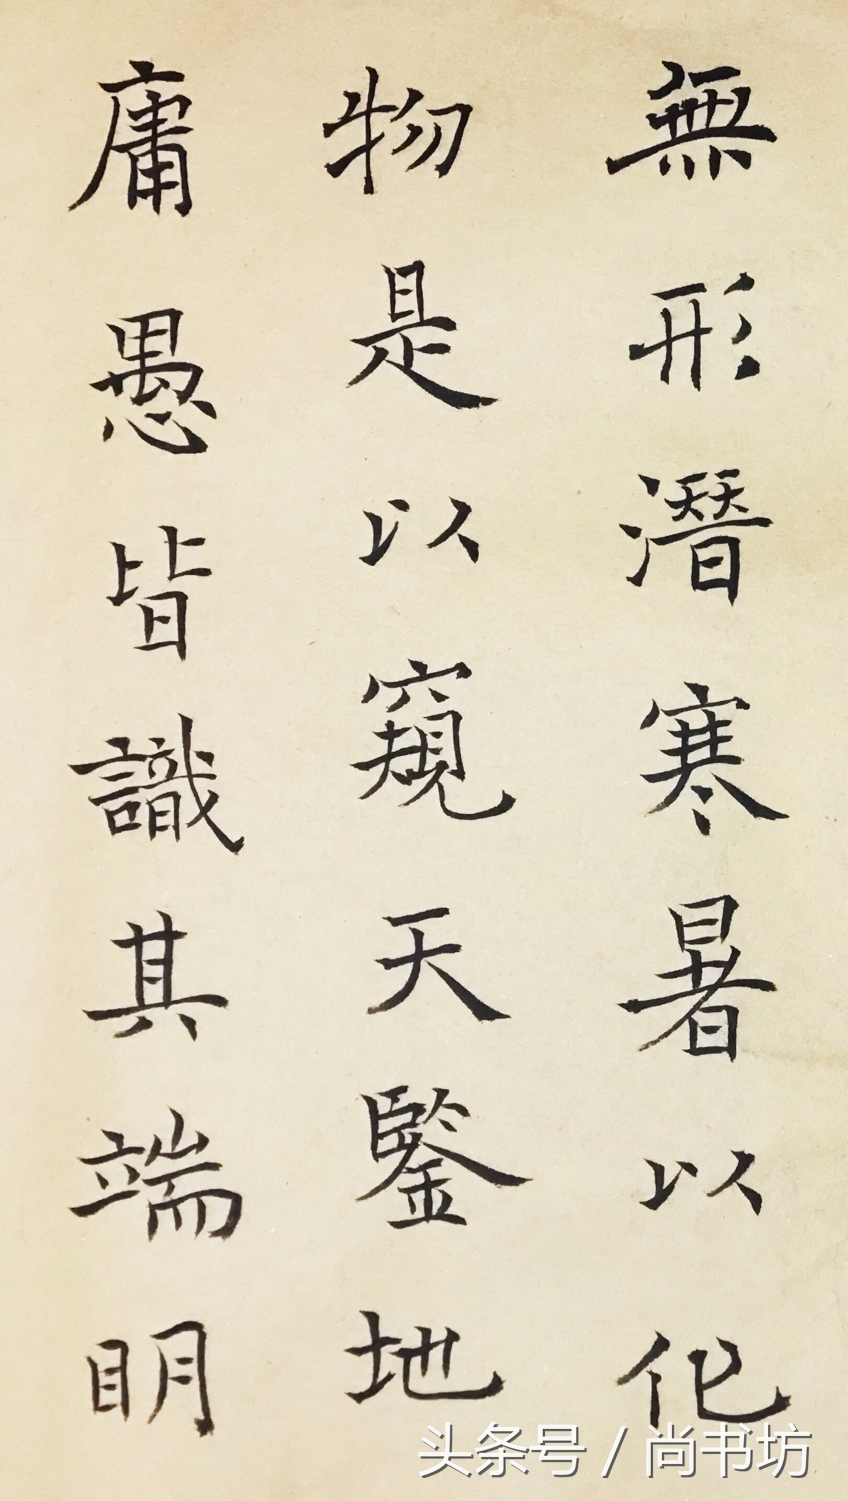 無形潛寒暑以化
物是以窺天鑒地
庸愚皆識其端明
头条号 / 尚书坊